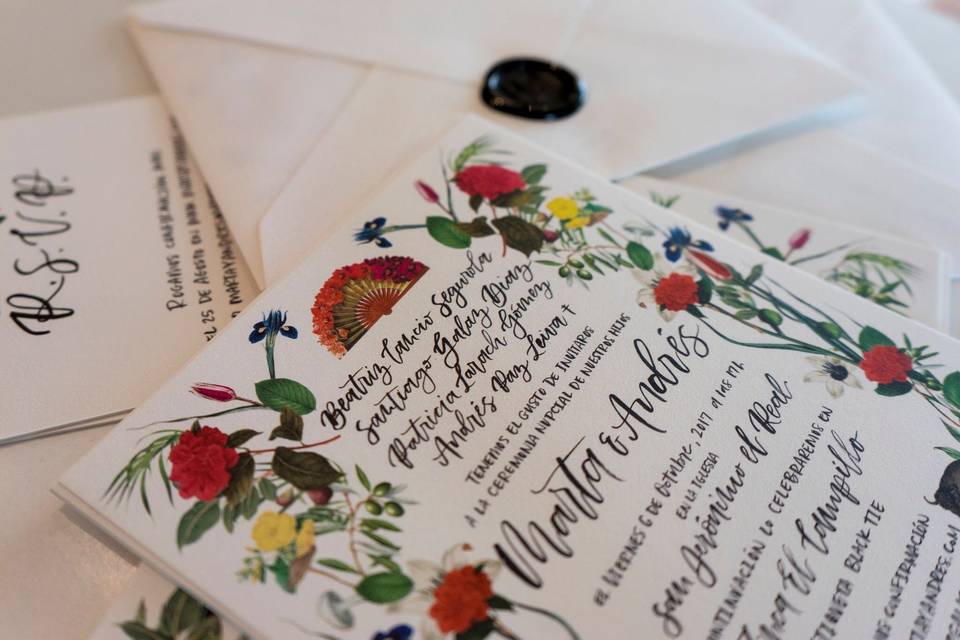 R.S.V.P.
ROGAMOS CONFIRMACIÓN
EL 25 DE AGOSTO EN
Beatriz Lancio Segirola
Santiago Galaz Díaz
Patricia Larach Gómez
Andrés Paz Leiva †
TENEMOS EL GUSTO DE INVITAROS
A LA CEREMONIA NUPCIAL DE NUESTROS HIJOS
Marta & Andrés
EL VIERNES 6 DE OCTUBRE, 2017 A LAS 17H
EN LA IGLESIA
San Jerónimo el Real
CONTINUACIÓN LO CELEBRAREMOS EN
El Campillo
ETIQUETA BLACK TIE
CONFIRMACIÓN